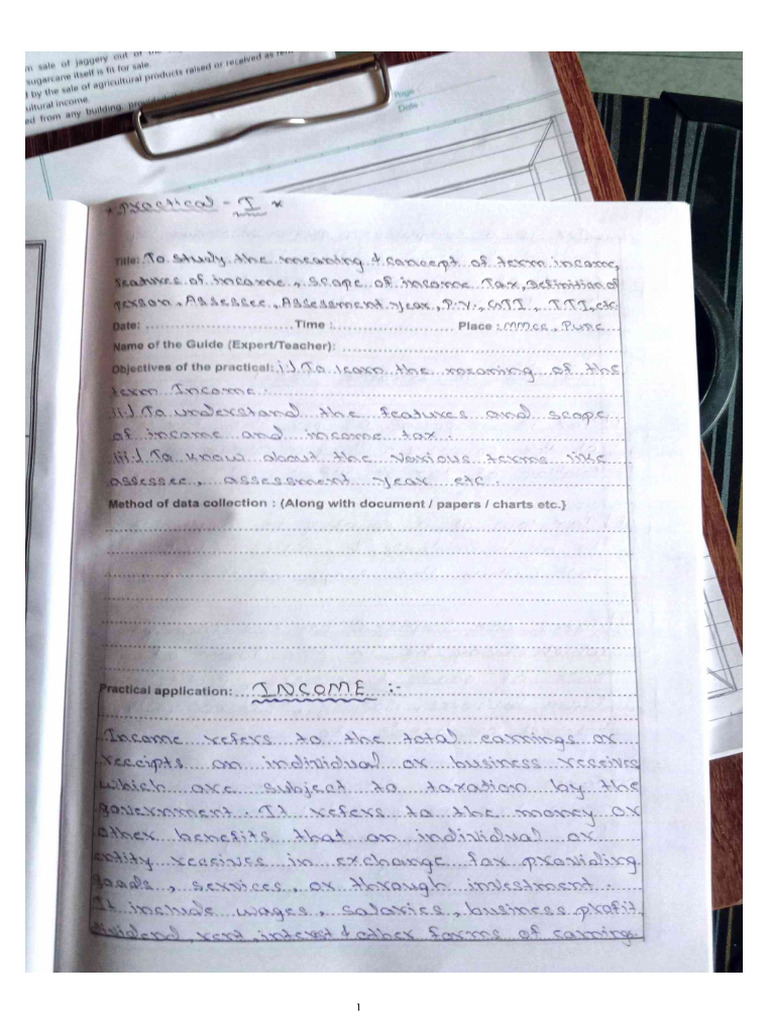 m sale of jaggery out of the
sugarcane itself is fit for sale.
by the sale of agricultural products raised or received as rent
ultural income.
ed from any building, provided
Page :
Date :
* Practical - I *
Title: To study the meaning & concept of term income,
features of income, scope of Income Tax, Definition of
person, Assessee, Assessment year, P.Y., GTI, TTI, etc.
Date: Time : Place : MMCC, Pune
Name of the Guide (Expert/Teacher):
Objectives of the practical: i.) To learn the meaning of the
term Income.
ii.) To understand the features and scope
of income and income tax.
iii.) To know about the various terms like
assessee, assessment year etc.
Method of data collection : (Along with document / papers / charts etc.}
Practical application: INCOME :-
Income refers to the total earnings or
receipts an individual or business receives
which are subject to taxation by the
government. It refers to the money or
other benefits that an individual or
entity receives in exchange for providing
goods, services, or through investment.
It include wages, salaries, business profit,
dividend, rent, interest & other forms of earnings.
1